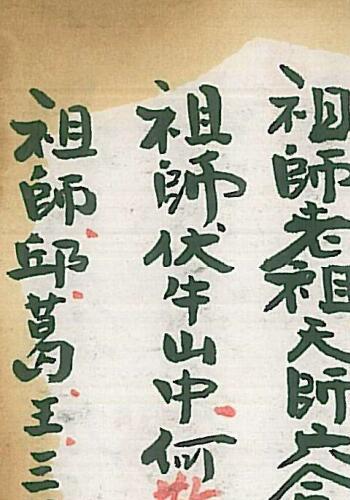 祖師老祖天師六
祖師伏牛山中何
祖師邱葛王三